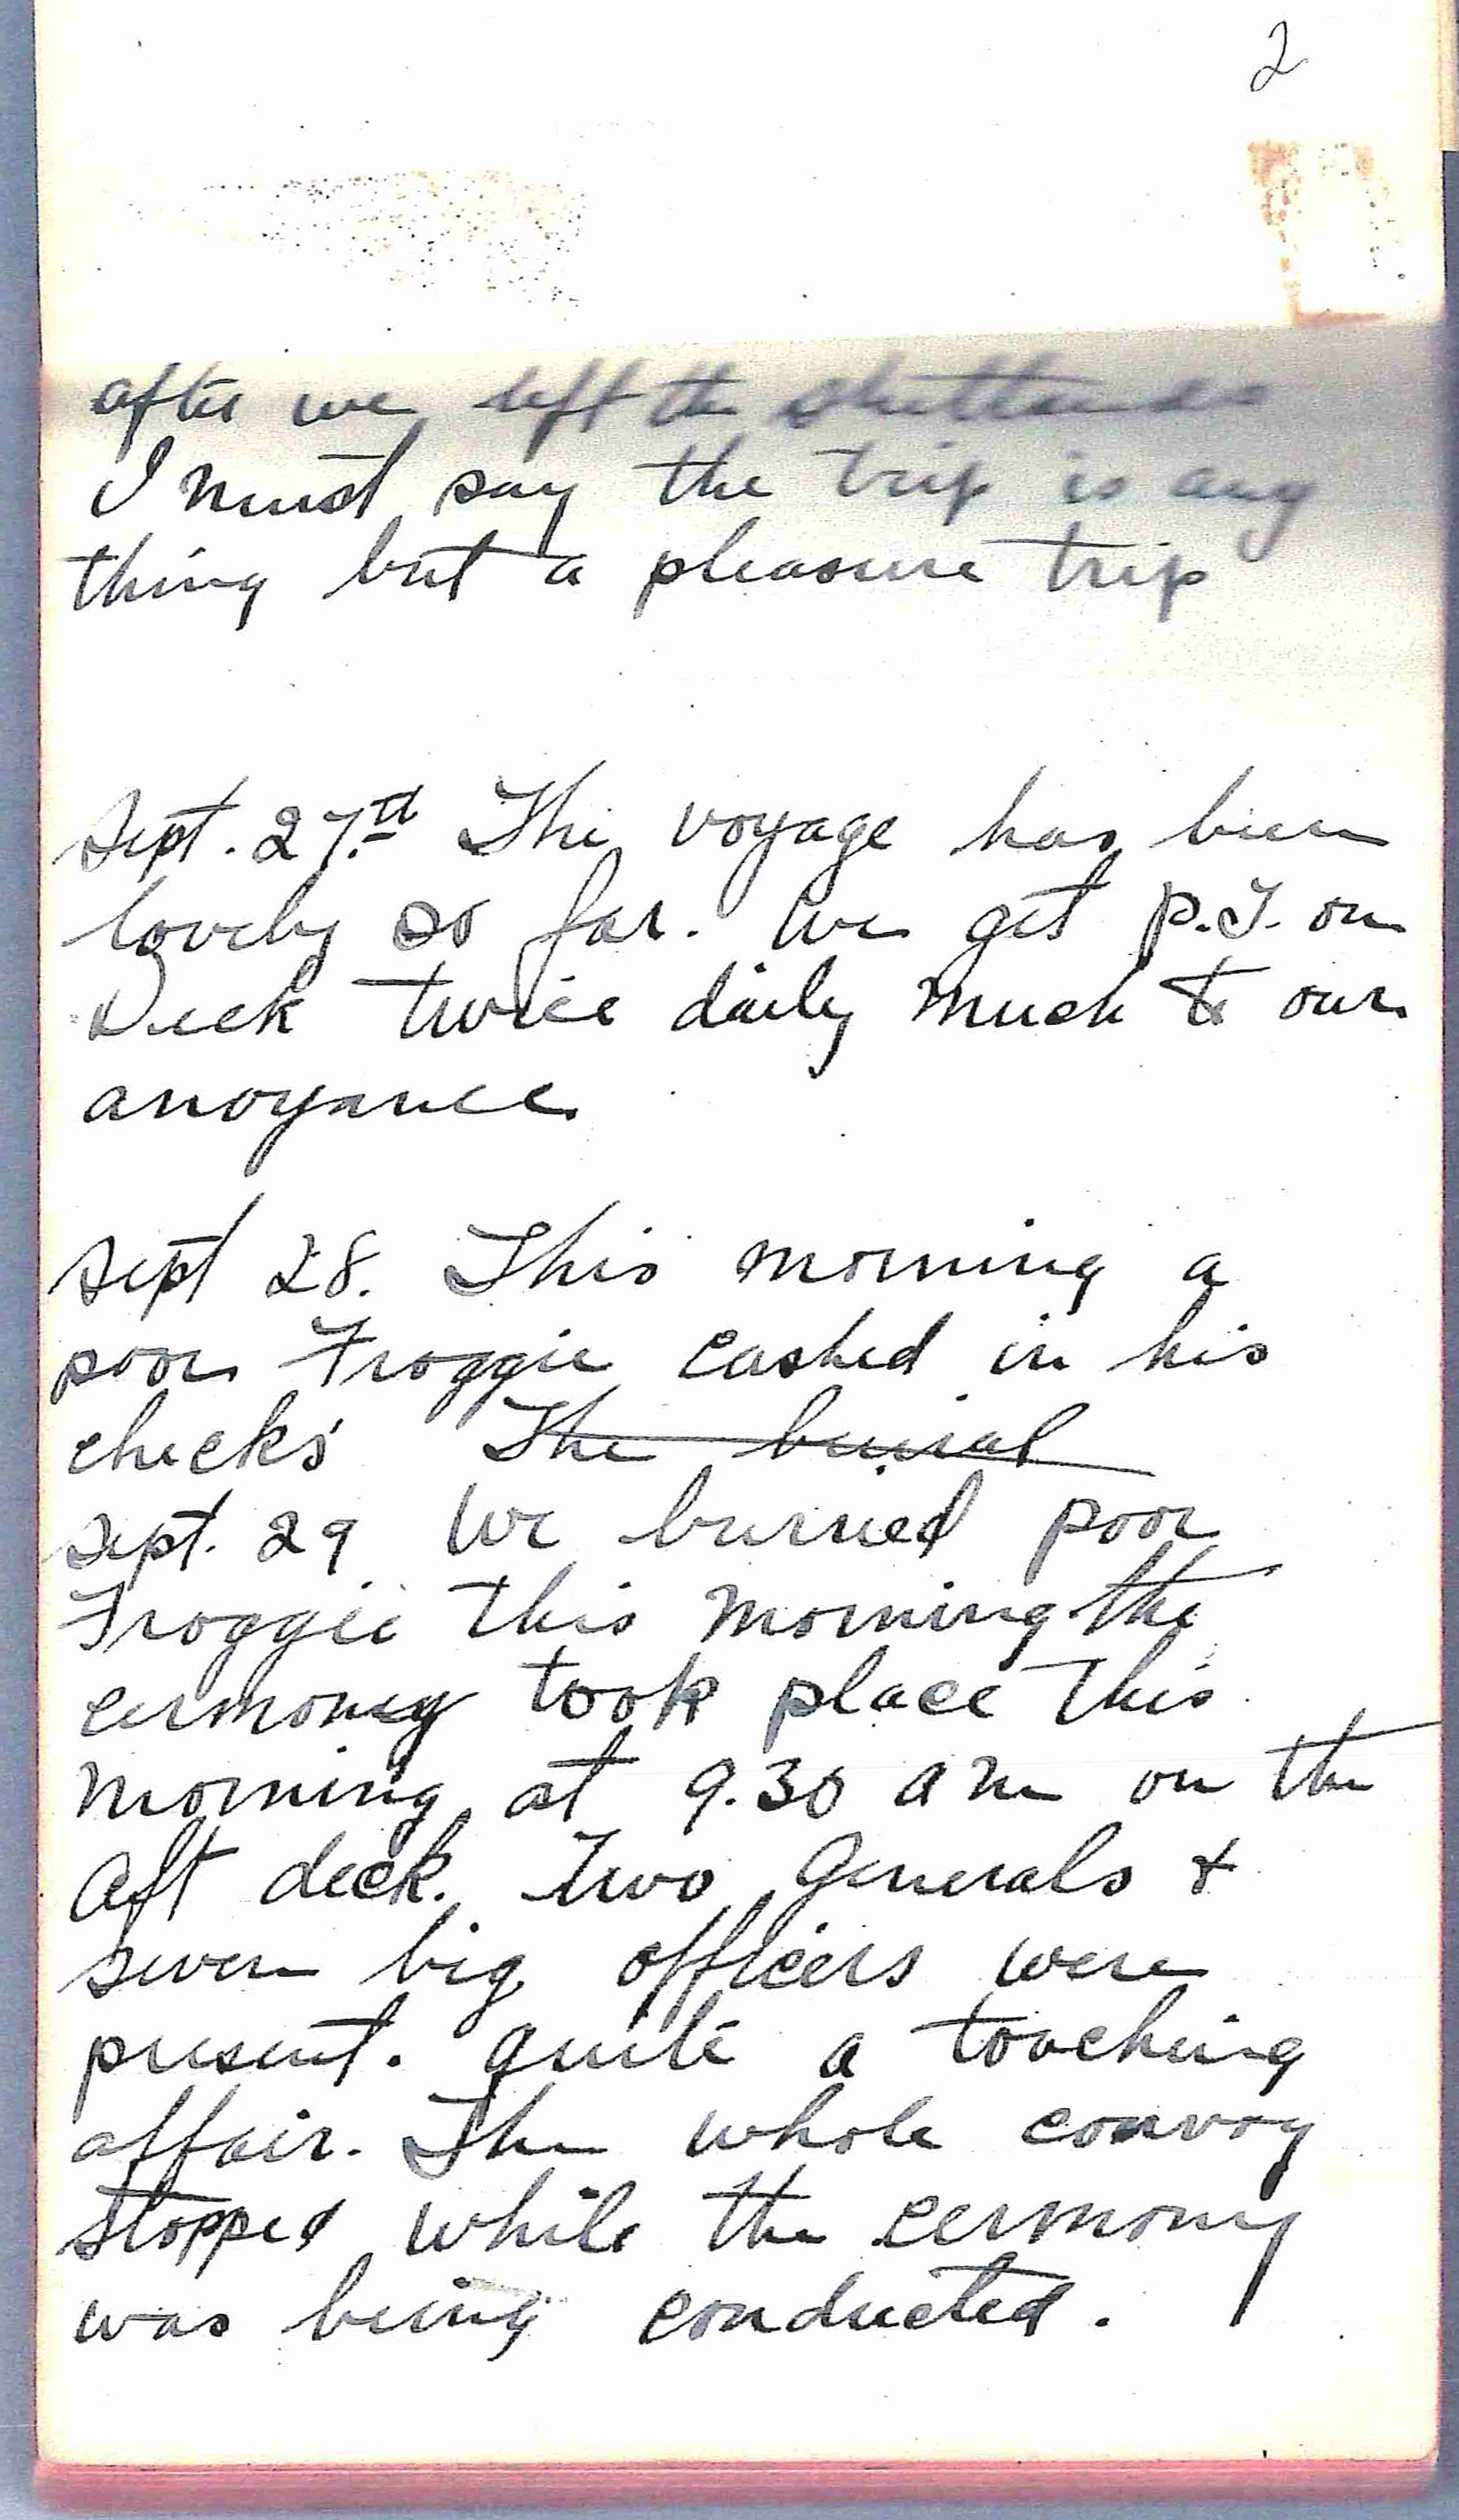 2
after we left the shettends
I must say the trip is any
thing but a pleasure trip
Sept. 27.th The voyage has been
lovely so far. We get P.T. on
Deck twice daily much to our
anoyance
Sept 28. This morning a
poor Froggie cashed in his
checks The burial
Sept. 29 We burried poor
Froggie this morning the
cermoney took place this
morning at 9.30 am on the
aft deck. Two Generals &
seven big officers were
present. quite a touching
affair. The whole convoy
stopped while the cermony
was being conducted.